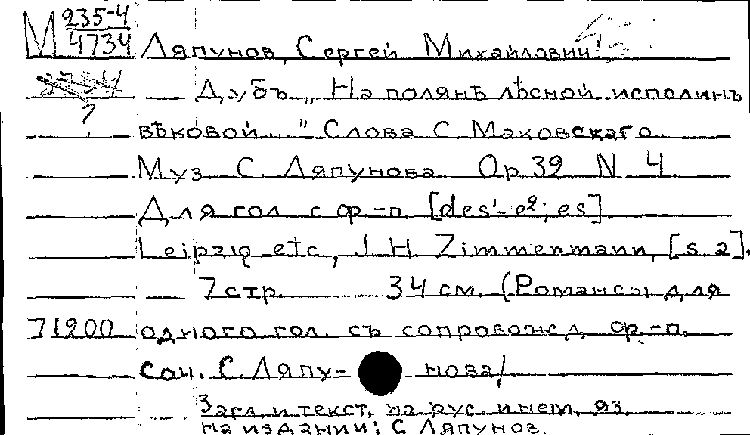 М 235-4
4734 Ляпунов, Сергей Михайлович
Дубъ „На полянѣ лѣсной исполинъ
вѣковой..." Слова С. Маковскаго
Муз. С. Ляпунова Op. 39 N 4
Для гол. с ф-п. [des'-e²; es]
Leipzig etc, J. H. Zimmermann, [s. a].
7 стр. 34 см. (Романсы для
71200 одного гол. съ сопровожд. ф-п.
соч. С. Ляпу- нова/
Загл. и текст. на рус. и нем. яз.
На издании: С Ляпунов.